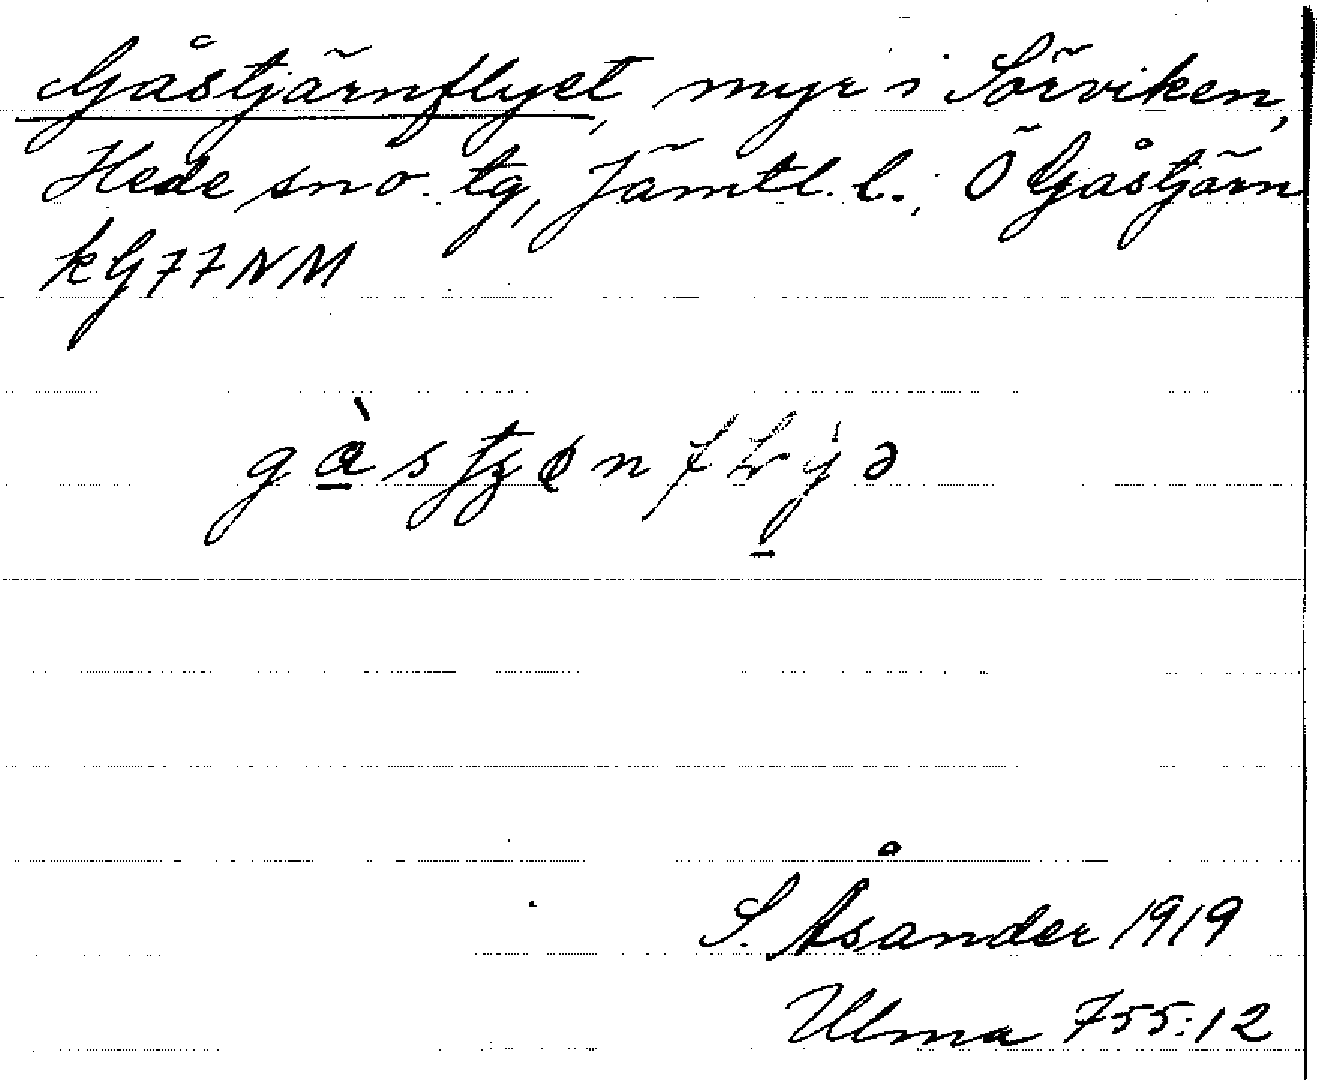 Gåstjärnflyet, myr i Sörviken,
Hede sn o. tg, Jämtl. l.; Ö Gåstjärn
kG77NM
S. Åsander 1919
Ulma 755:12